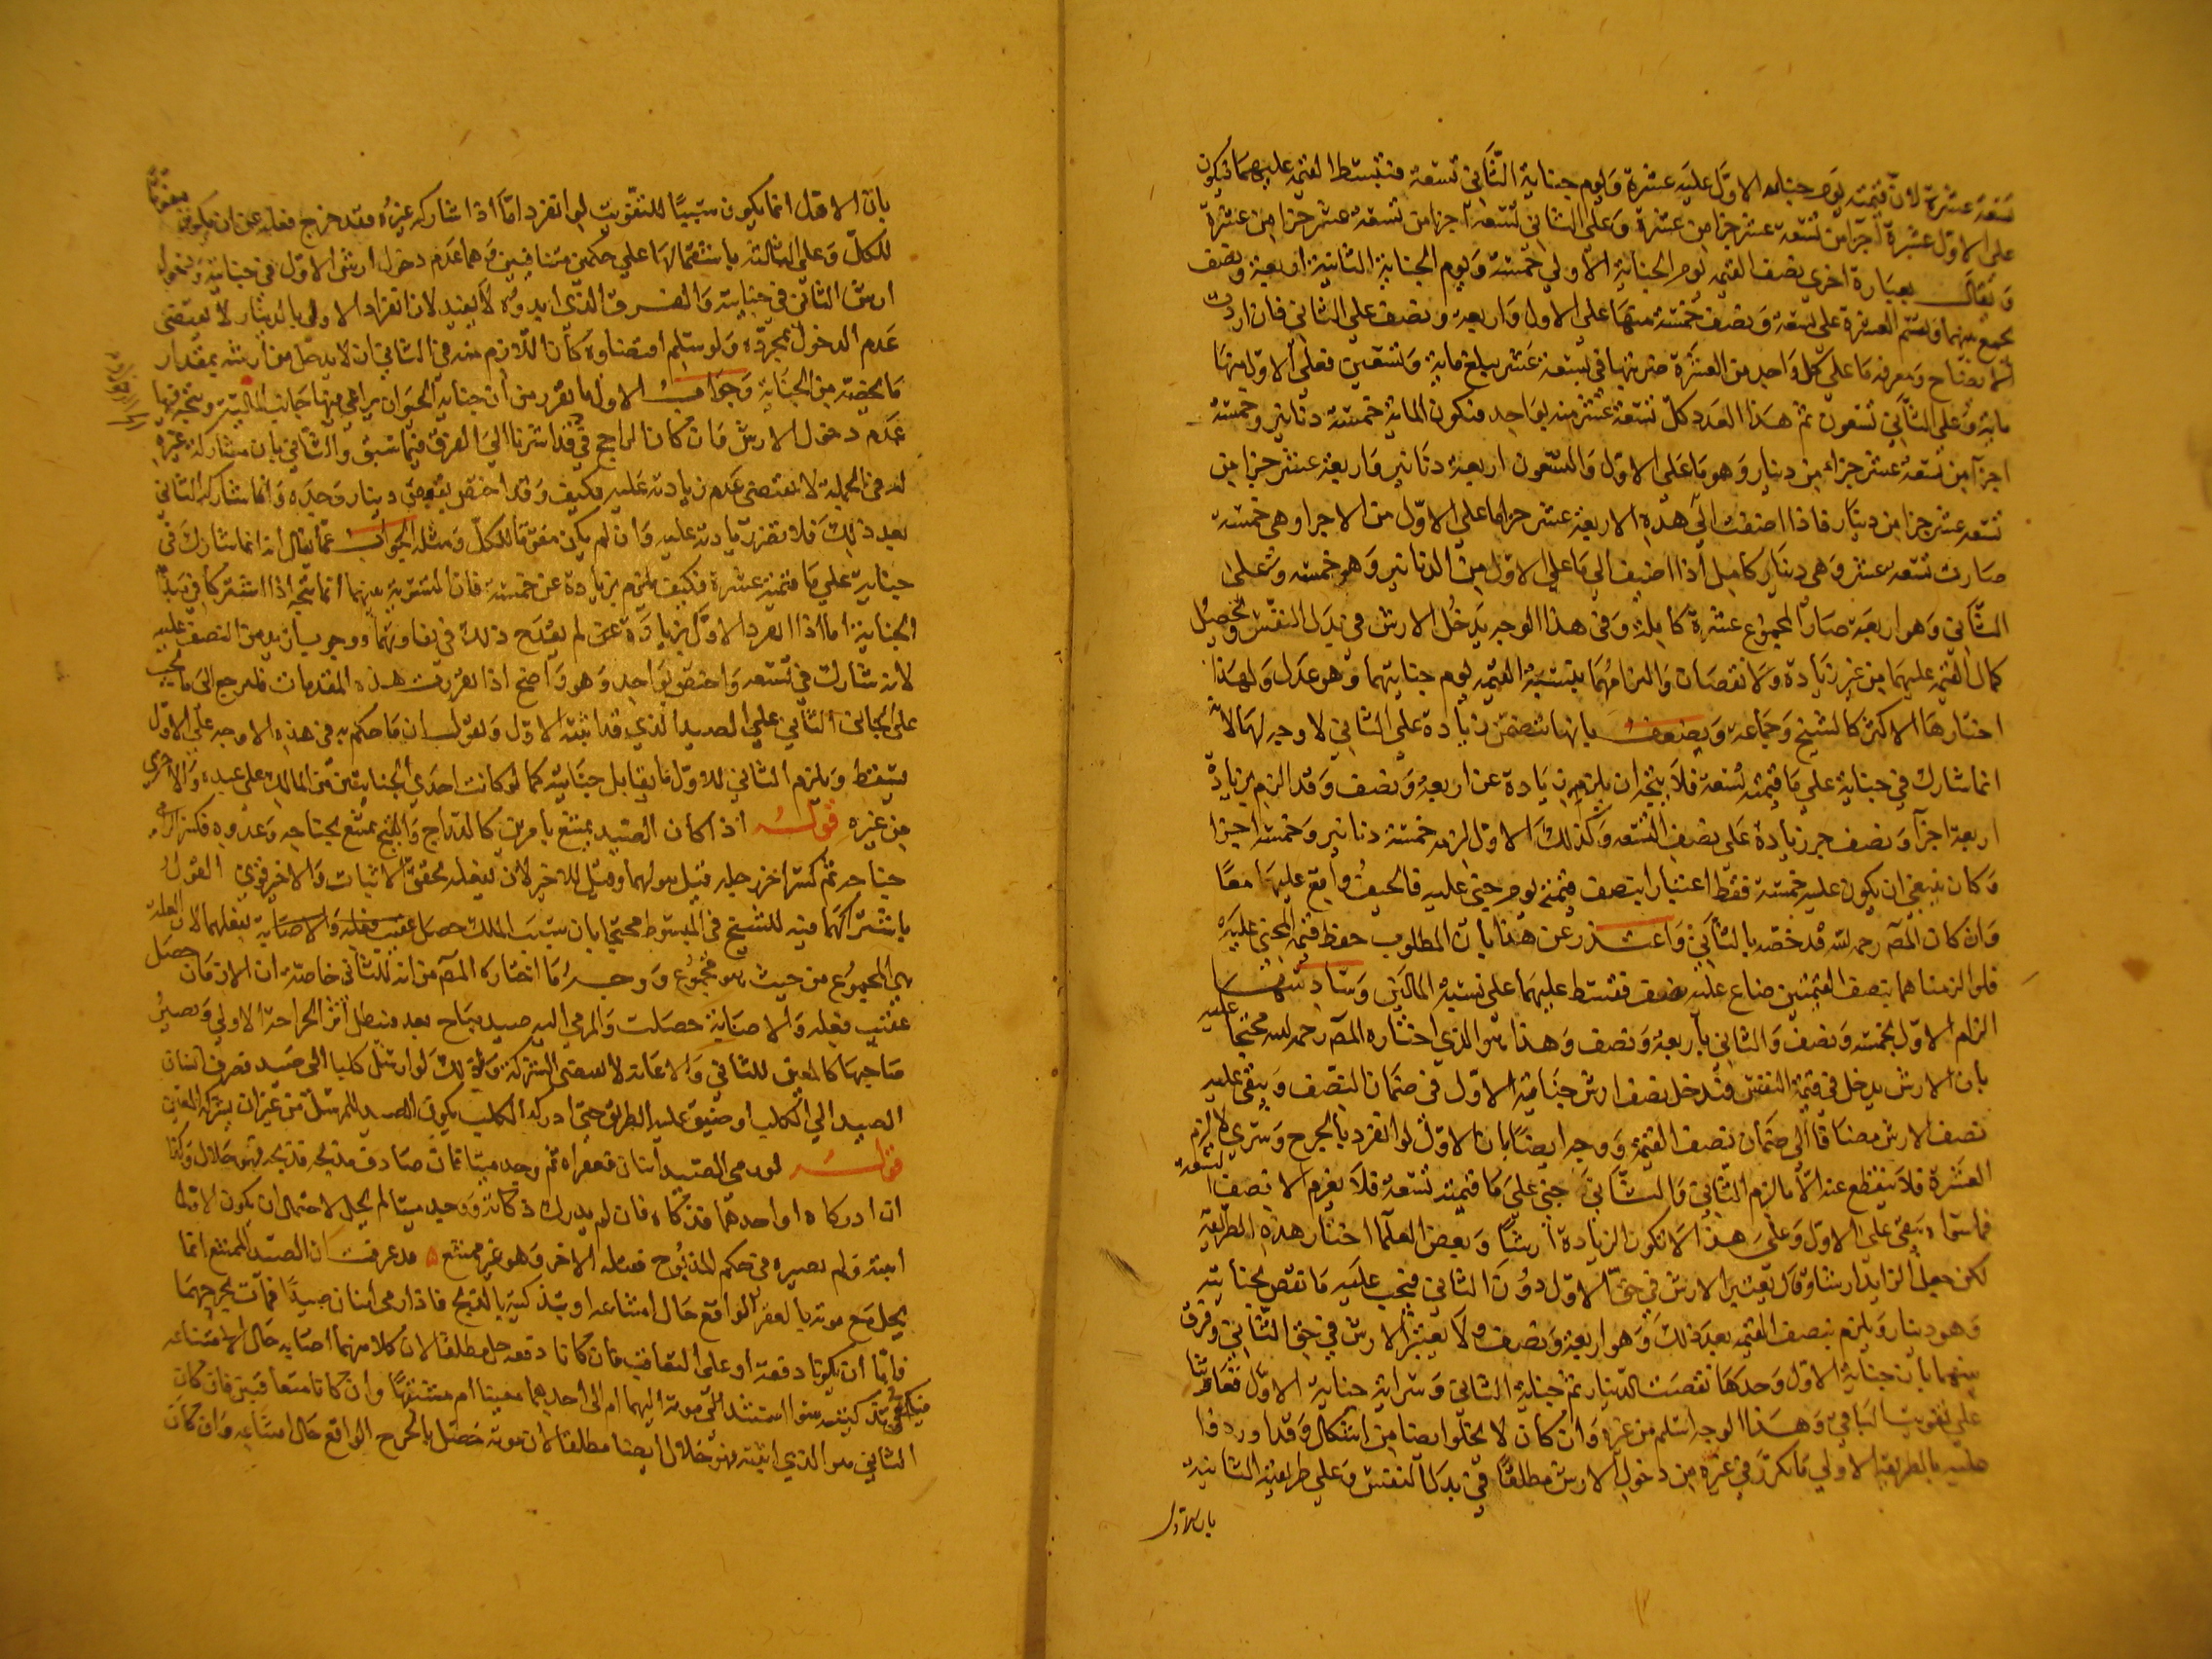 تسعة عشرة لان قيمته يوم جناية الاول عليه عشرة ويوم جناية الثاني تسعة فتبسط القيمة عليهما فيكون
على الاول عشرة اجزا من تسعة عشر جزا من عشرة وعلى الثاني تسعة اجزا من تسعة عشر جزا من عشرة
ويقال بعبارة اخرى نصف القيمة يوم الجناية الاولى خمسة ويوم الجناية الثانية اربعة ونصف
يجمع بينهما ويقسم العشرة على تسعة ونصف خمسة منها على الاول واربعة ونصف على الثاني فان اردت
الايضاح ومعرفة ما على كل واحد من العشرة ضربتها في تسعة عشر يبلغ ماية وتسعين فعلى الاول منها
ماية وعلى الثاني تسعون ثم هذا العدد كل تسعة عشر منه بواحد فتكون الماية خمسة دنانير وخمسة
اجزآ من تسعة عشر جزاء من دينار وهو ما على الاول والتسعون اربعة دنانير واربعة عشر جزا من
تسعة عشر جزا من دينار فاذا اضفت الى هذه الاربعة عشر جزا ما على الاول من الاجزا وهي خمسة
صارت تسعة عشر وهي دينار كامل اذا اضيف الى ما على الاول من الدنانير وهو خمسة وعلى
الثاني وهو اربعة صار المجموع عشرة كاملة وفي هذا الوجه يدخل الارش في بدل النفس وتحصيل
كمال القيمة عليهما من غير زيادة ولا نقصان والزامهما بنسبة القيمة يوم جنايتهما وهو عدل ولهذا
اختارها الاكثر كالشيخ وجماعة ويضعف بانها تتضمن زيادة على الثاني لا وجه لها لانه
انما شارك في جناية على ما قيمته تسعة فلا يتجه ان يلزمه زيادة عن اربعة ونصف وقد الزم بزيادة
اربعة اجزآ ونصف جز زيادة على نصف التسعة وكذلك الاول لزمه خمسة دنانير وخمسة اجزا
وكان ينبغي ان يكون عليه خمسة فقط اعتبارا بنصف قيمته يوم جنى عليه فالحيف واقع عليهما معا
وان كان المصه رحمه الله قد خصه بالثاني واعتذر عن هذا بان المطلوب حفظ قيمة المجني عليه
فلو الزمناهما بنصف القيمتين ضاع عليه نصف فقسط عليهما على نسبة المالين وسادسها
الزام الاول بخمسة ونصف والثاني باربعة ونصف وهذا هو الذي اختاره المصه رحمه الله محتجا عليه
بان الارش يدخل في قيمة النفس فيدخل نصف ارش جناية الاول في ضمان النصف ويبقى عليه
نصف الارش مضافا الى ضمان نصف القيمة ووجه ايضا بان الاول لو انفرد بالجرح وسرى لا لزم
العشرة فلا يقطع عنه الا ما لزم الثاني والثاني جنى على ما قيمته تسعة فلا يغرم الا نصف التسعة
فما سواه يبقى على الاول وعلى هذا لا تكون الزيادة ارشا وبعض العلما اختار هذه الطريقة
لكن جعل الزايد ارشا وقال يعتبر الارش في حق الاول دون الثاني فيجب عليه ما نقص بجنايته
وهو دينار ويلزم بنصف القيمة بعد ذلك وهو اربعة ونصف ولا يعتبر الارش في حق الثاني وفرق
بينهما بان جناية الاول وحدها نقصت الدينار ثم جناية الثاني وسراية جناية الاول تعاونتا
على تفويت الباقي وهذا الوجه اسلم من غيره وان كان لا يخلو ايضا من اشكال وقد اوردوا
عليه بالطريقة الاولى ما تكرر في غيره من دخول الارش مطلقا في بدل النفس وعلى طريقته الثانية
بان الاول
بان الاول انما يكون سببا للتفويت لو انفرد اما اذا شاركه غيره فقد خرج فعله عن ان يكون مفوتا
للكل وعلى الثالثة باشتمالها على حكمين متنافيين وهما عدم دخول ارش الاول في جنايته ودخول
ارش الثاني في جنايته والفرق الذي ابدوه لا يفيد لان انفراد الاول بالدينار لا يقتضي
عدم الدخول بمجرده ولو سلم اقتضاوه كان اللازم منه في الثاني ان لا يدخل من ارشه بمقدار
ما يخصه من الجناية وجواب الاول ما تقرر من ان جناية الحيوان يراعى فيها جانب المالية ويتجه فيها
عدم دخول الارش فان كان الراجح فقد اشرنا الى الفرق فيما سبق والثاني بان مشاركة غيره
له في الجملة لا يقتضي عدم زيادته عليه فكيف وقد اختص بتفويت دينار وحده وانما شاركه الثاني
بعد ذلك فلا تضر زيادته عليه وان لم يكن مفوتا للكل ومثله الجواب عما يقال انه انما شارك في
جناية على ما قيمته عشرة فكيف يلزم بزيادة عن خمسة فان التسوية بينهما انما تتجه اذا اشتركا في مبدأ
الجناية اما اذا انفرد الاول بزيادة عن لم يقدح ذلك في تفاوتهما ووجوب ازيد من النصف عليه
لانه شارك في تسعة واختص بواحد وهو واضح اذا تقررت هذه المقدمات فلنرجع الى ما يجب
على الجاني الثاني على الصيد الذي قد اثبته الاول ونقول ان ما حكم به في هذه الاوجه على الاول
يسقط ويلزم الثاني للاول ما يقابل جنايته كما لو كانت احدى الجنايتين من المالك على عبده والاخرى
من غيره قوله اذا كان الصيد يمتنع بامرين كالدراج والقبج يمتنع بجناحه وعدوه فكسر الرامي
جناحه ثم كسر اخر رجله قيل هو لهما وقيل للاخير لان بفعله تحقق الاثبات والاخير قوي القول
باشتراكهما فيه للشيخ في المبسوط محتجا بان سبب الملك حصل بفعلهما لان العلة
هي المجموع من حيث هو مجموع ووجه ما اختاره المصه من انه للثاني خاصة ان الازمان حصل
عقيب فعله والاصابة حصلت والمرمي اليه صيد مباح بعد فيبطل اثر الجراحة الاولى ويصير
صاحبها كالمعين للثاني والاعانة لا تقتضي الشركة ولذلك لو ارسل كلبا الى صيد فصرف انسان
الصيد الى الكلب او ضيق عليه الطريق حتى ادركه الكلب يكون الصيد للمرسل من غير ان يشركه المعين
قوله لو رمى الصيد اثنان فعقراه ثم وجد ميتا فان صادف مذبحه فذبحه فهو حلال وكذا
ان ادركاه او احدهما فذكاه فان لم يدرك ذكاته ووجد ميتا لم يحل لاحتمال ان يكون الاول
اثبته ولم يصيره في حكم المذبوح فقتله الاخر وهو غير ممتنع قد عرفت ان الصيد الممتنع انما
يحل مع موته بالعقر الواقع حال امتناعه او بتذكيته بالذبح فاذا رمى اثنان صيدا فمات بجرحهما
فاما ان يكونا دفعة او على التعاقب فان كانا دفعة حل مطلقا لان كلا منهما اصابه حال الامتناع
كيف هو استند الى موته اليهما ام الى احدهما معينا ام مشتبها وان كانا متعاقبين فان كان
الثاني هو الذي اثبته فهو حلال ايضا مطلقا لان موته حصل بالجرح الواقع حال امتناعه وان كان